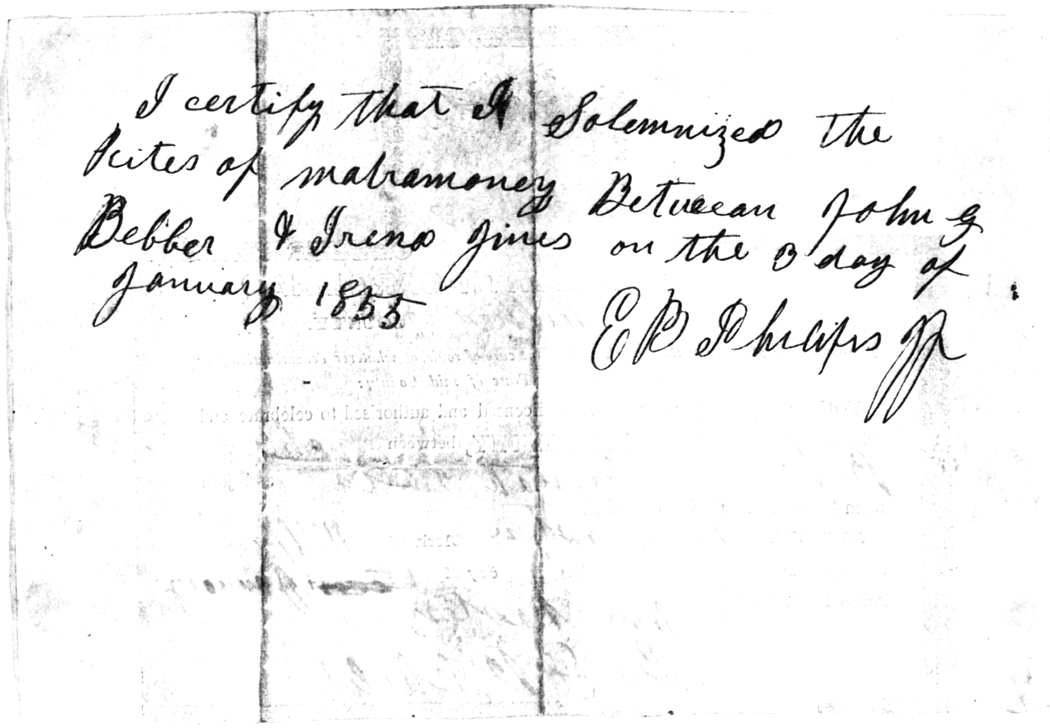 I certify that I Solemnized the
Rites of matramoney Betweean John G
Bebber & Irena Jines on the 3 day of
January 1855
E B Philips JP